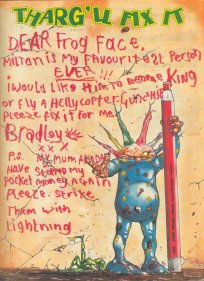 THARG'LL FIX IT
DEAR Frog FacE,
MILTON is My FAVOURITEST PERSON
EVER !!!
i WOULD LIKE HIM TO BECOME KING
or FLY A HELLYCOPTER GUNCHIP
PLEEZE FIX iT FOR ME
BradLey
x x x
P.S. MY MUM And DAD
HAVE STOPPED MY
POCKET MONEY AGAIN
PLEEZE STRIKE
THEM WITH
LIGHTNING